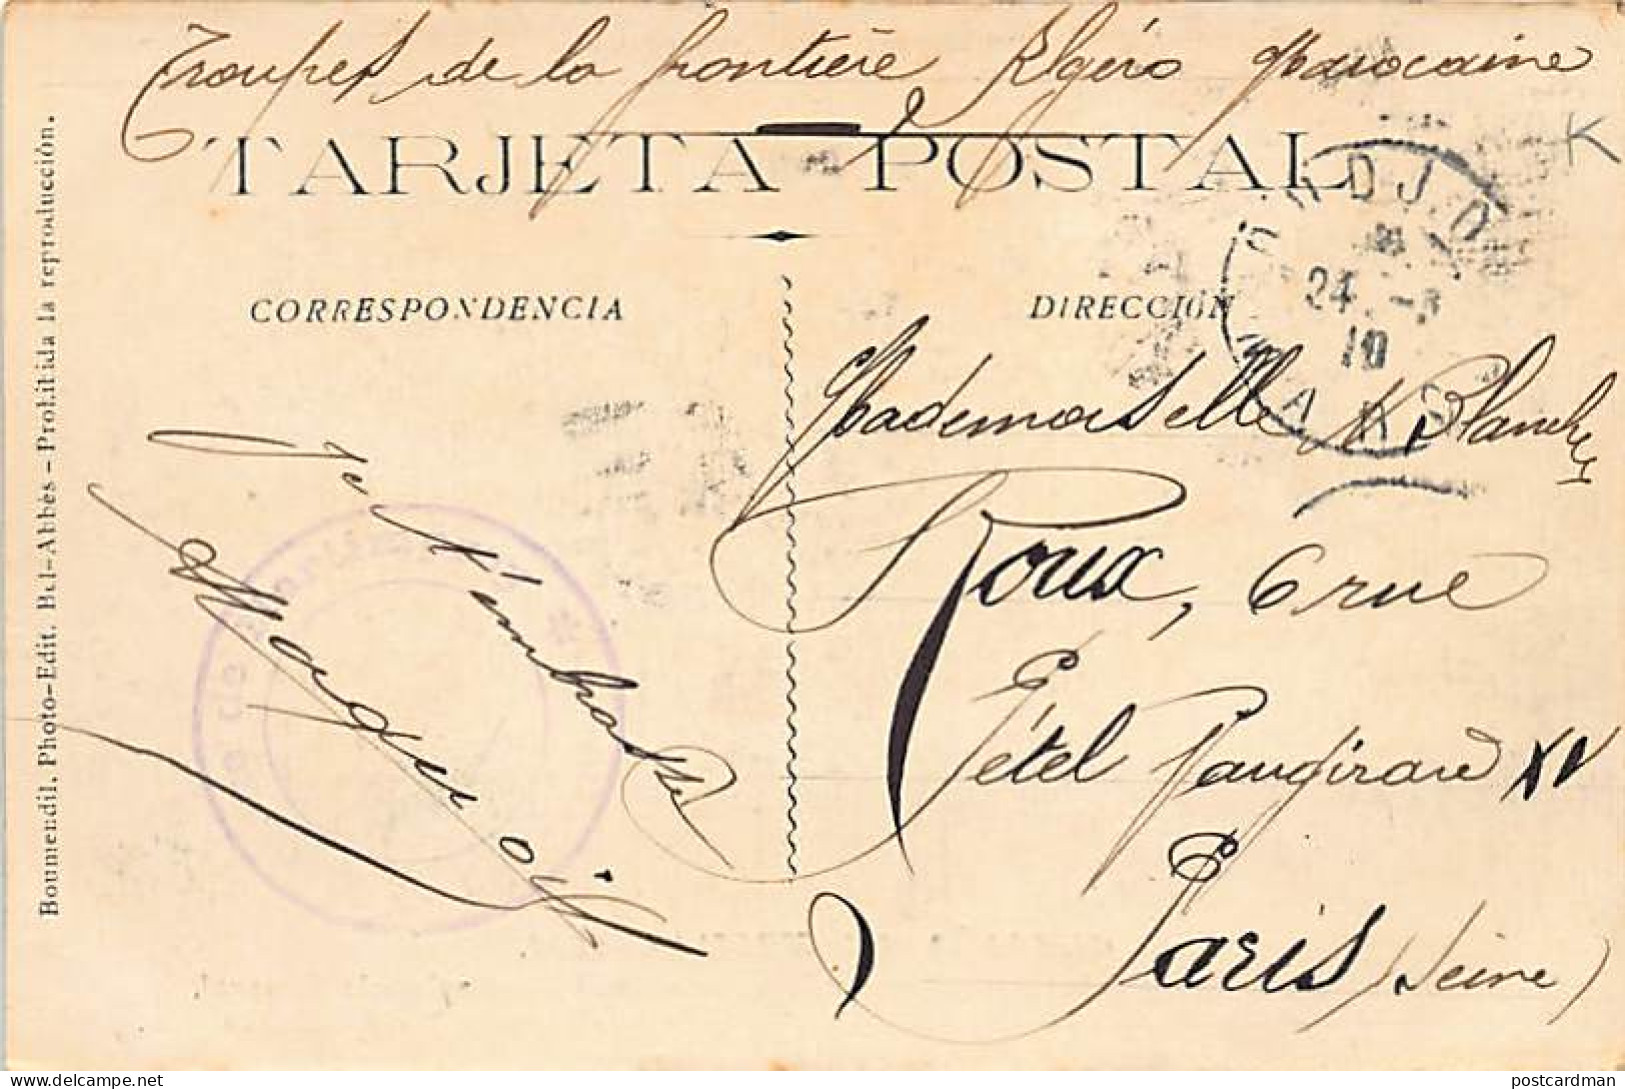 Troupes de la frontière Algéro Marocaine
TARJETA POSTAL
K
CORRESPONDENCIA
DIRECCIÓN
24 10
Je t'embrasse
Mademoiselle Blanche
Roux, 6 rue
Pétel Vaugirard XV
Paris (Seine)
Boumendil. Photo-Edit. Bel-Abbès - Prohibida la reproducción.
postcardman